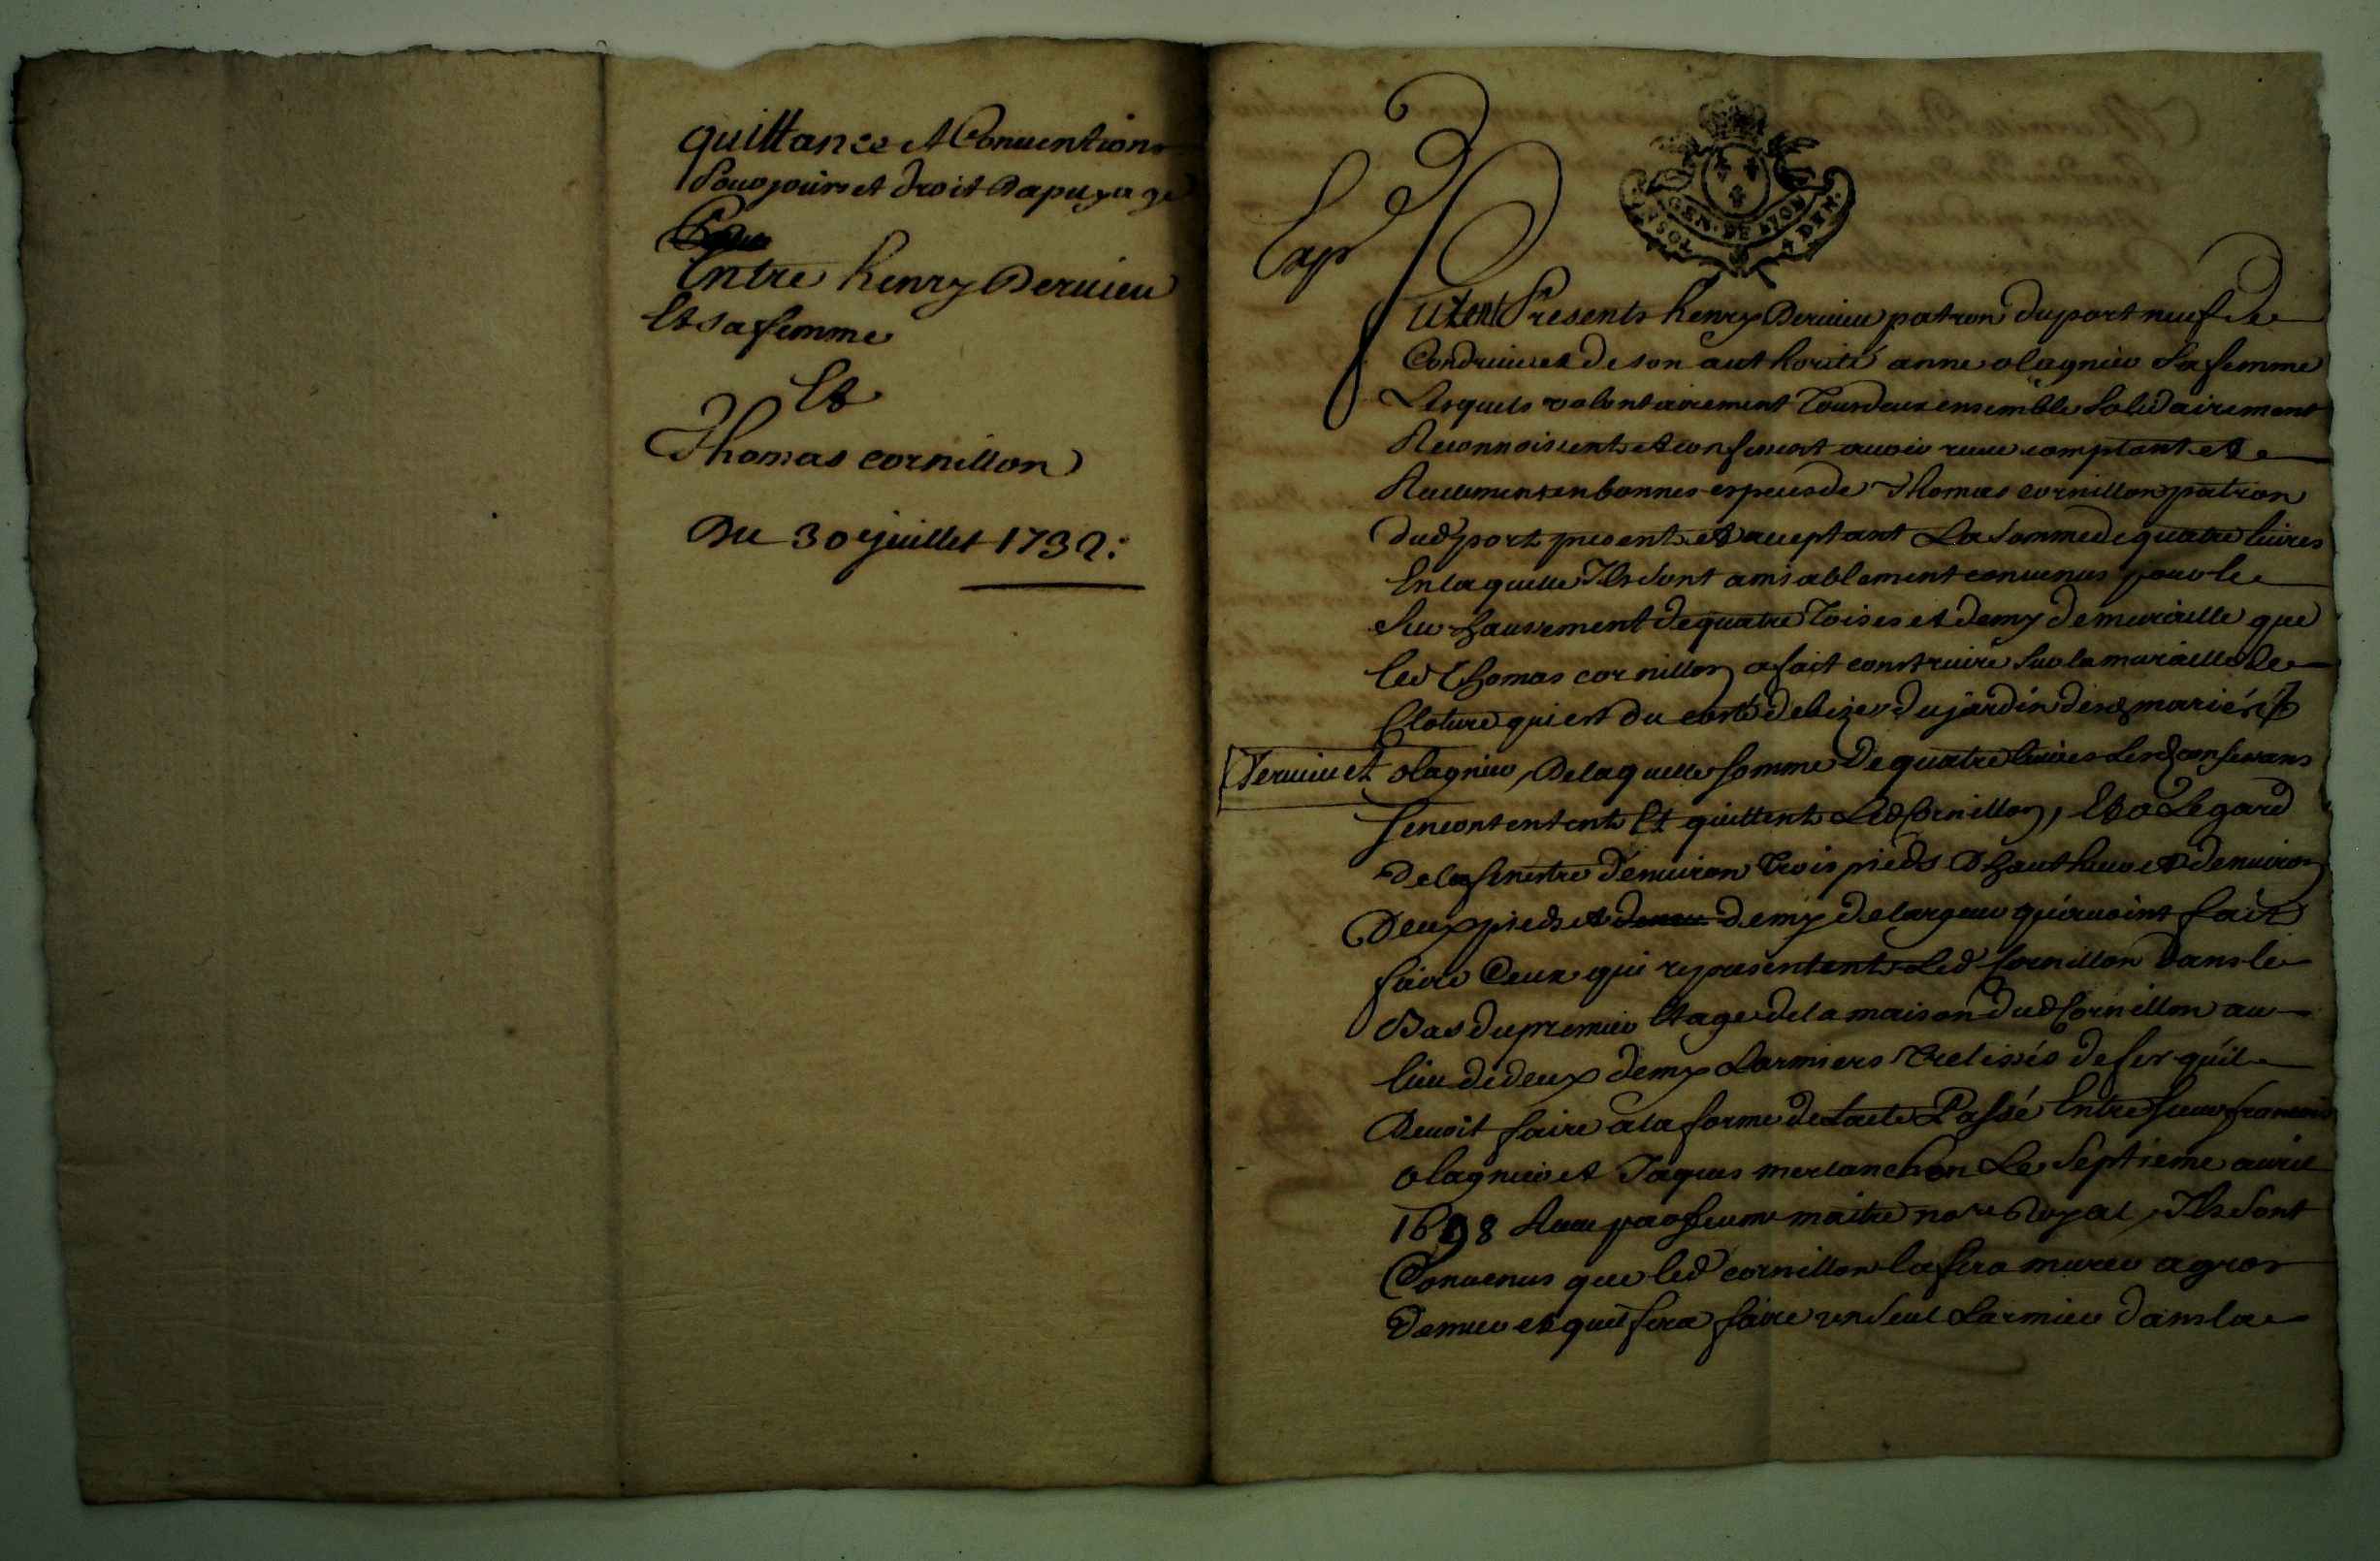 quittance et Conuentions
Pour jours et droit Dapuyage
Entre henry Deruieu
Et sa femme
Et
Thomas cornillon
Du 30e juillet 1732:
Exp
GEN. DE LYON
furent Presents henry Deruieu patron du port neuf de
Condrieu et de son authorité anne olagnier sa femme
Lesquels volontairement Tous deux ensemble solidairement
Reconnoissent et confessent auoir receu comptant et
Reellement en bonnes especes de Thomas cornillon patron
dud port present et acceptant La somme de quatre liures
En laquelle Ils sont amiablement conuenus pour le
sur haussement de quatre Toises et demy de muraille que
led Thomas cornillon a fait construire sur la muraille de
Cloture qui est du costé de bize du jardin desd mariés
Deruieu et olagnier, De laquelle somme De quatre liures Lesd confessans
se contentent Et quittent Led Cornillon, Et a Legard
De la fenestre d'enuiron Trois pieds D hautheur et denuiron
Deux pieds et demy de largeur fait
faire Ceux qui representent Led Cornillon dans le
Bas du premier Etage de la maison dud Cornillon au
lieu de deux demy Larmiers Trelissés de fer quil
Deuoit faire a la forme de Lacte Passé Entre sieur francois
olagnier et Jaques merlanchon Le Septieme auril
1698 Receu par feu me maitre nore Royal, Ils sont
Conuenus que led cornillon la fera murer a gros
De mur et quil fera faire un seul Larmier dans la